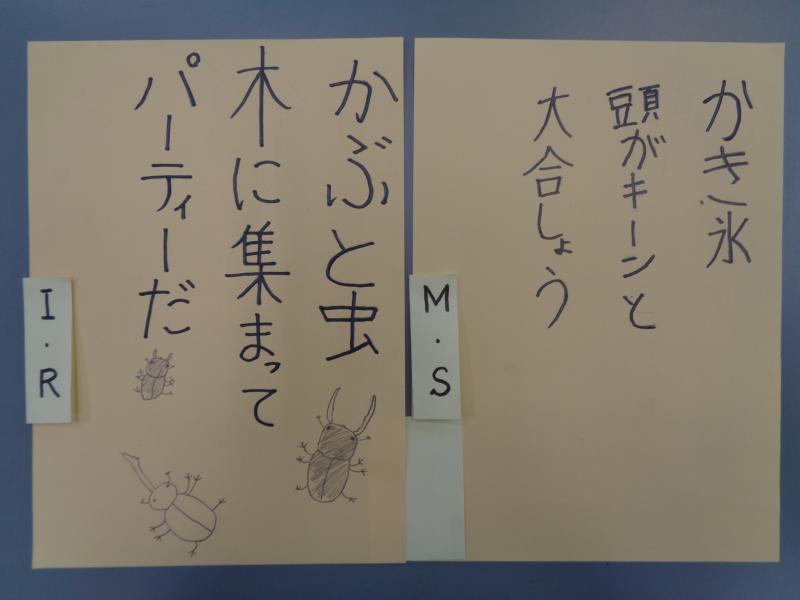 かき氷
頭がキーンと
大合しょう
M.S
かぶと虫
木に集まって
パーティーだ
I.R